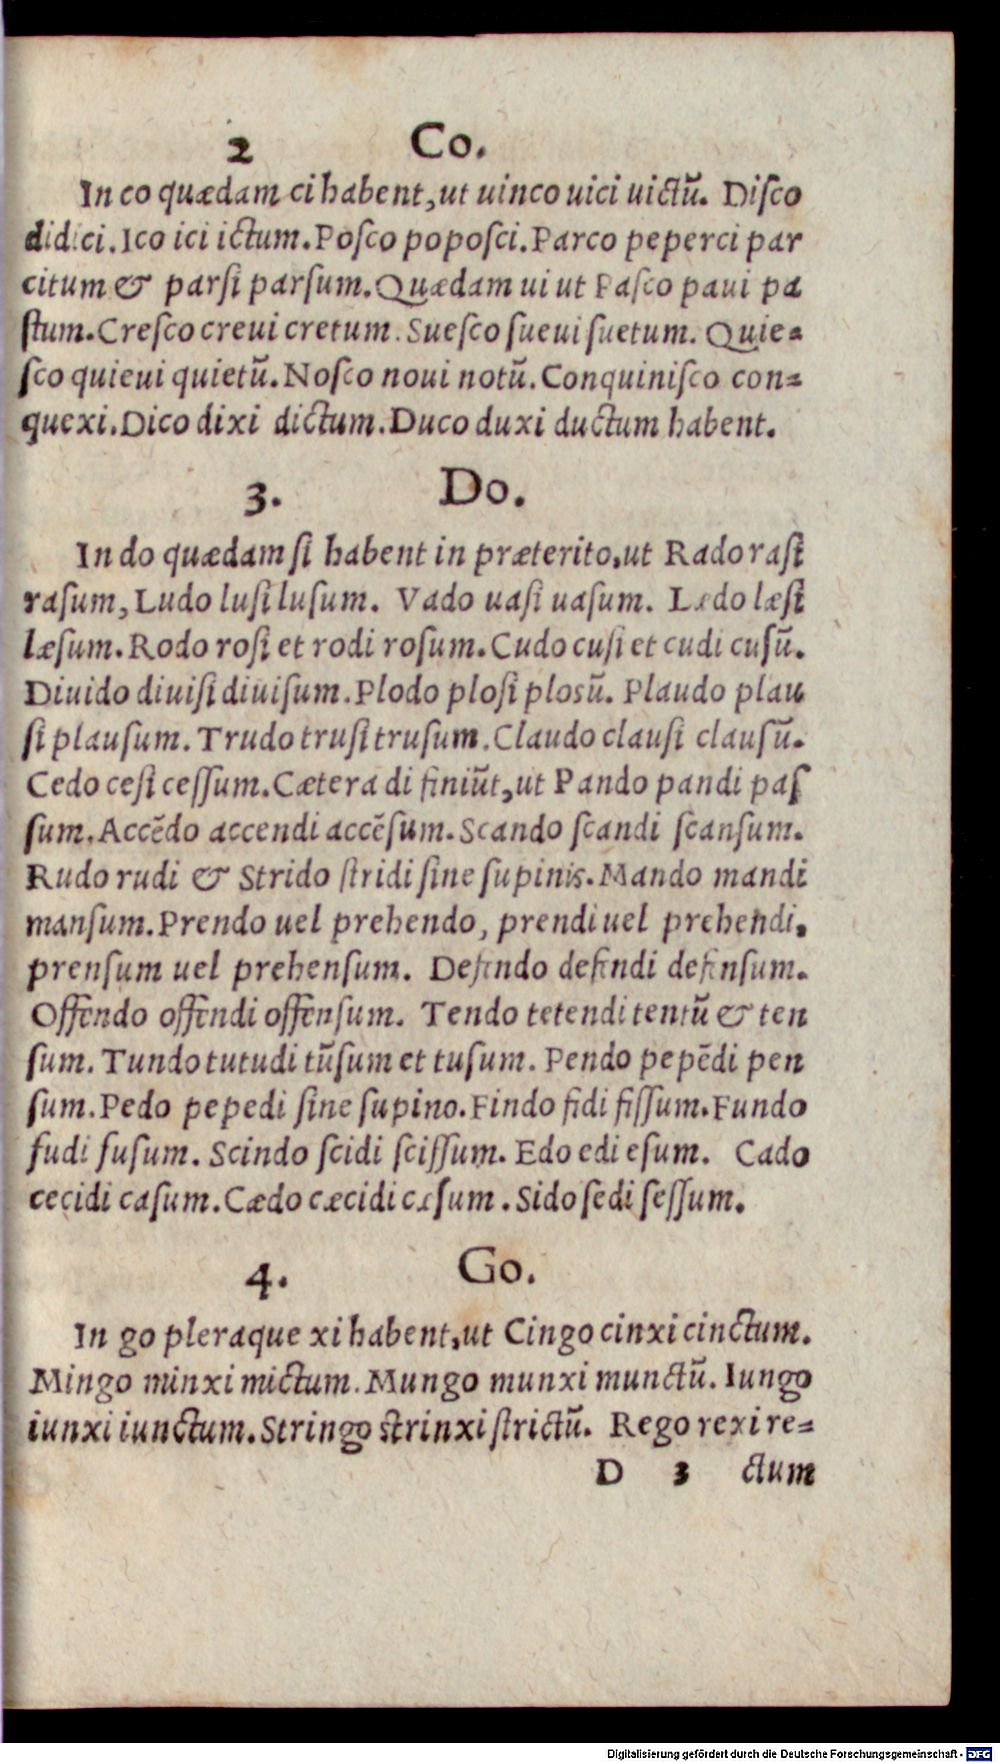 2 Co.
In co quædam ci habent, ut uinco uici uictū. Diſco
didici. Ico ici ictum. Poſco popoſci. Parco peperci par
citum & parſi parſum. Quædam ui ut Paſco paui pa
ſtum. Creſco creui cretum. Sueſco ſueui ſuetum. Quie=
ſco quieui quietū. Noſco noui notū. Conquiniſco con=
quexi. Dico dixi dictum. Duco duxi ductum habent.
3. Do.
In do quædam ſi habent in præterito, ut Rado raſi
raſum, Ludo luſi luſum. Vado uaſi uaſum. Lædo læſi
læſum. Rodo roſi et rodi roſum. Cudo cuſi et cudi cuſū.
Diuido diuiſi diuiſum. Plodo ploſi plosū. Plaudo plau
ſi plauſum. Trudo truſi truſum. Claudo clauſi clauſū.
Cedo ceſi ceſſum. Cætera di finiūt, ut Pando pandi paſ
ſum. Accēdo accendi accēſum. Scando ſcandi ſcanſum.
Rudo rudi & Strido ſtridi ſine ſupinis. Mando mandi
manſum. Prendo uel prehendo, prendi uel prehendi,
prenſum uel prehenſum. Defendo defendi defenſum.
Offendo offendi offenſum. Tendo tetendi tentū & ten
ſum. Tundo tutudi tūſum et tuſum. Pendo pepēdi pen
ſum. Pedo pepedi ſine ſupino. Findo fidi fiſſum. Fundo
fudi fuſum. Scindo ſcidi ſciſſum. Edo edi eſum. Cado
cecidi caſum. Cædo cæcidi cæſum. Sido ſedi ſeſſum.
4. Go.
In go pleraque xi habent, ut Cingo cinxi cinctum.
Mingo minxi mictum. Mungo munxi munctū. Iungo
iunxi iunctum. Stringo ſtrinxi ſtrictū. Rego rexi re=
D 3 ctum
Digitalisierung gefördert durch die Deutsche Forschungsgemeinschaft - DFG